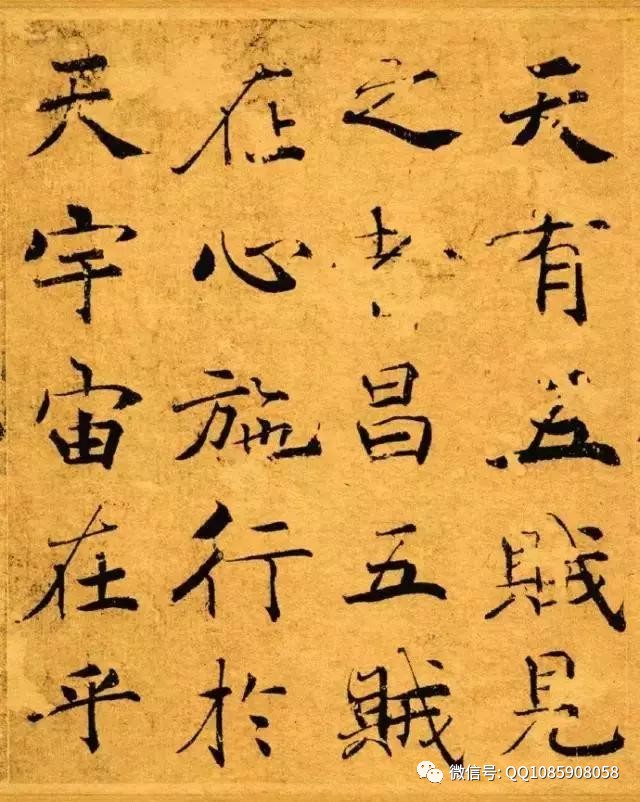 天有五賊見
之者昌五賊
在心施行於
天宇宙在乎
微信号: QQ1085908058